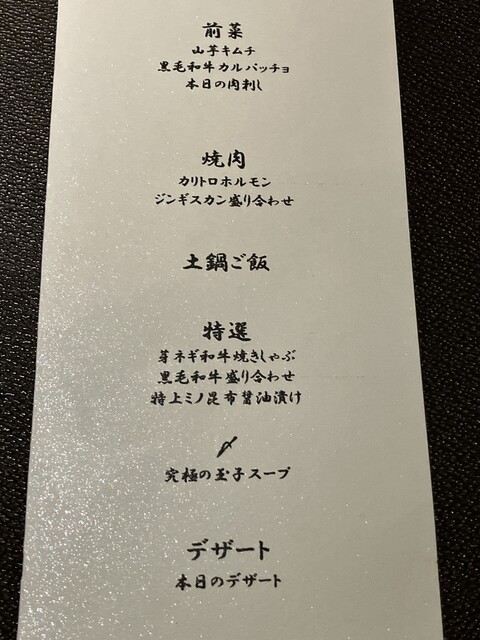 前菜
山芋キムチ
黒毛和牛カルパッチョ
本日の肉刺し
焼肉
カリトロホルモン
ジンギスカン盛り合わせ
土鍋ご飯
特選
芽ネギ和牛焼きしゃぶ
黒毛和牛盛り合わせ
特上ミノ昆布醤油漬け
〆
究極の玉子スープ
デザート
本日のデザート